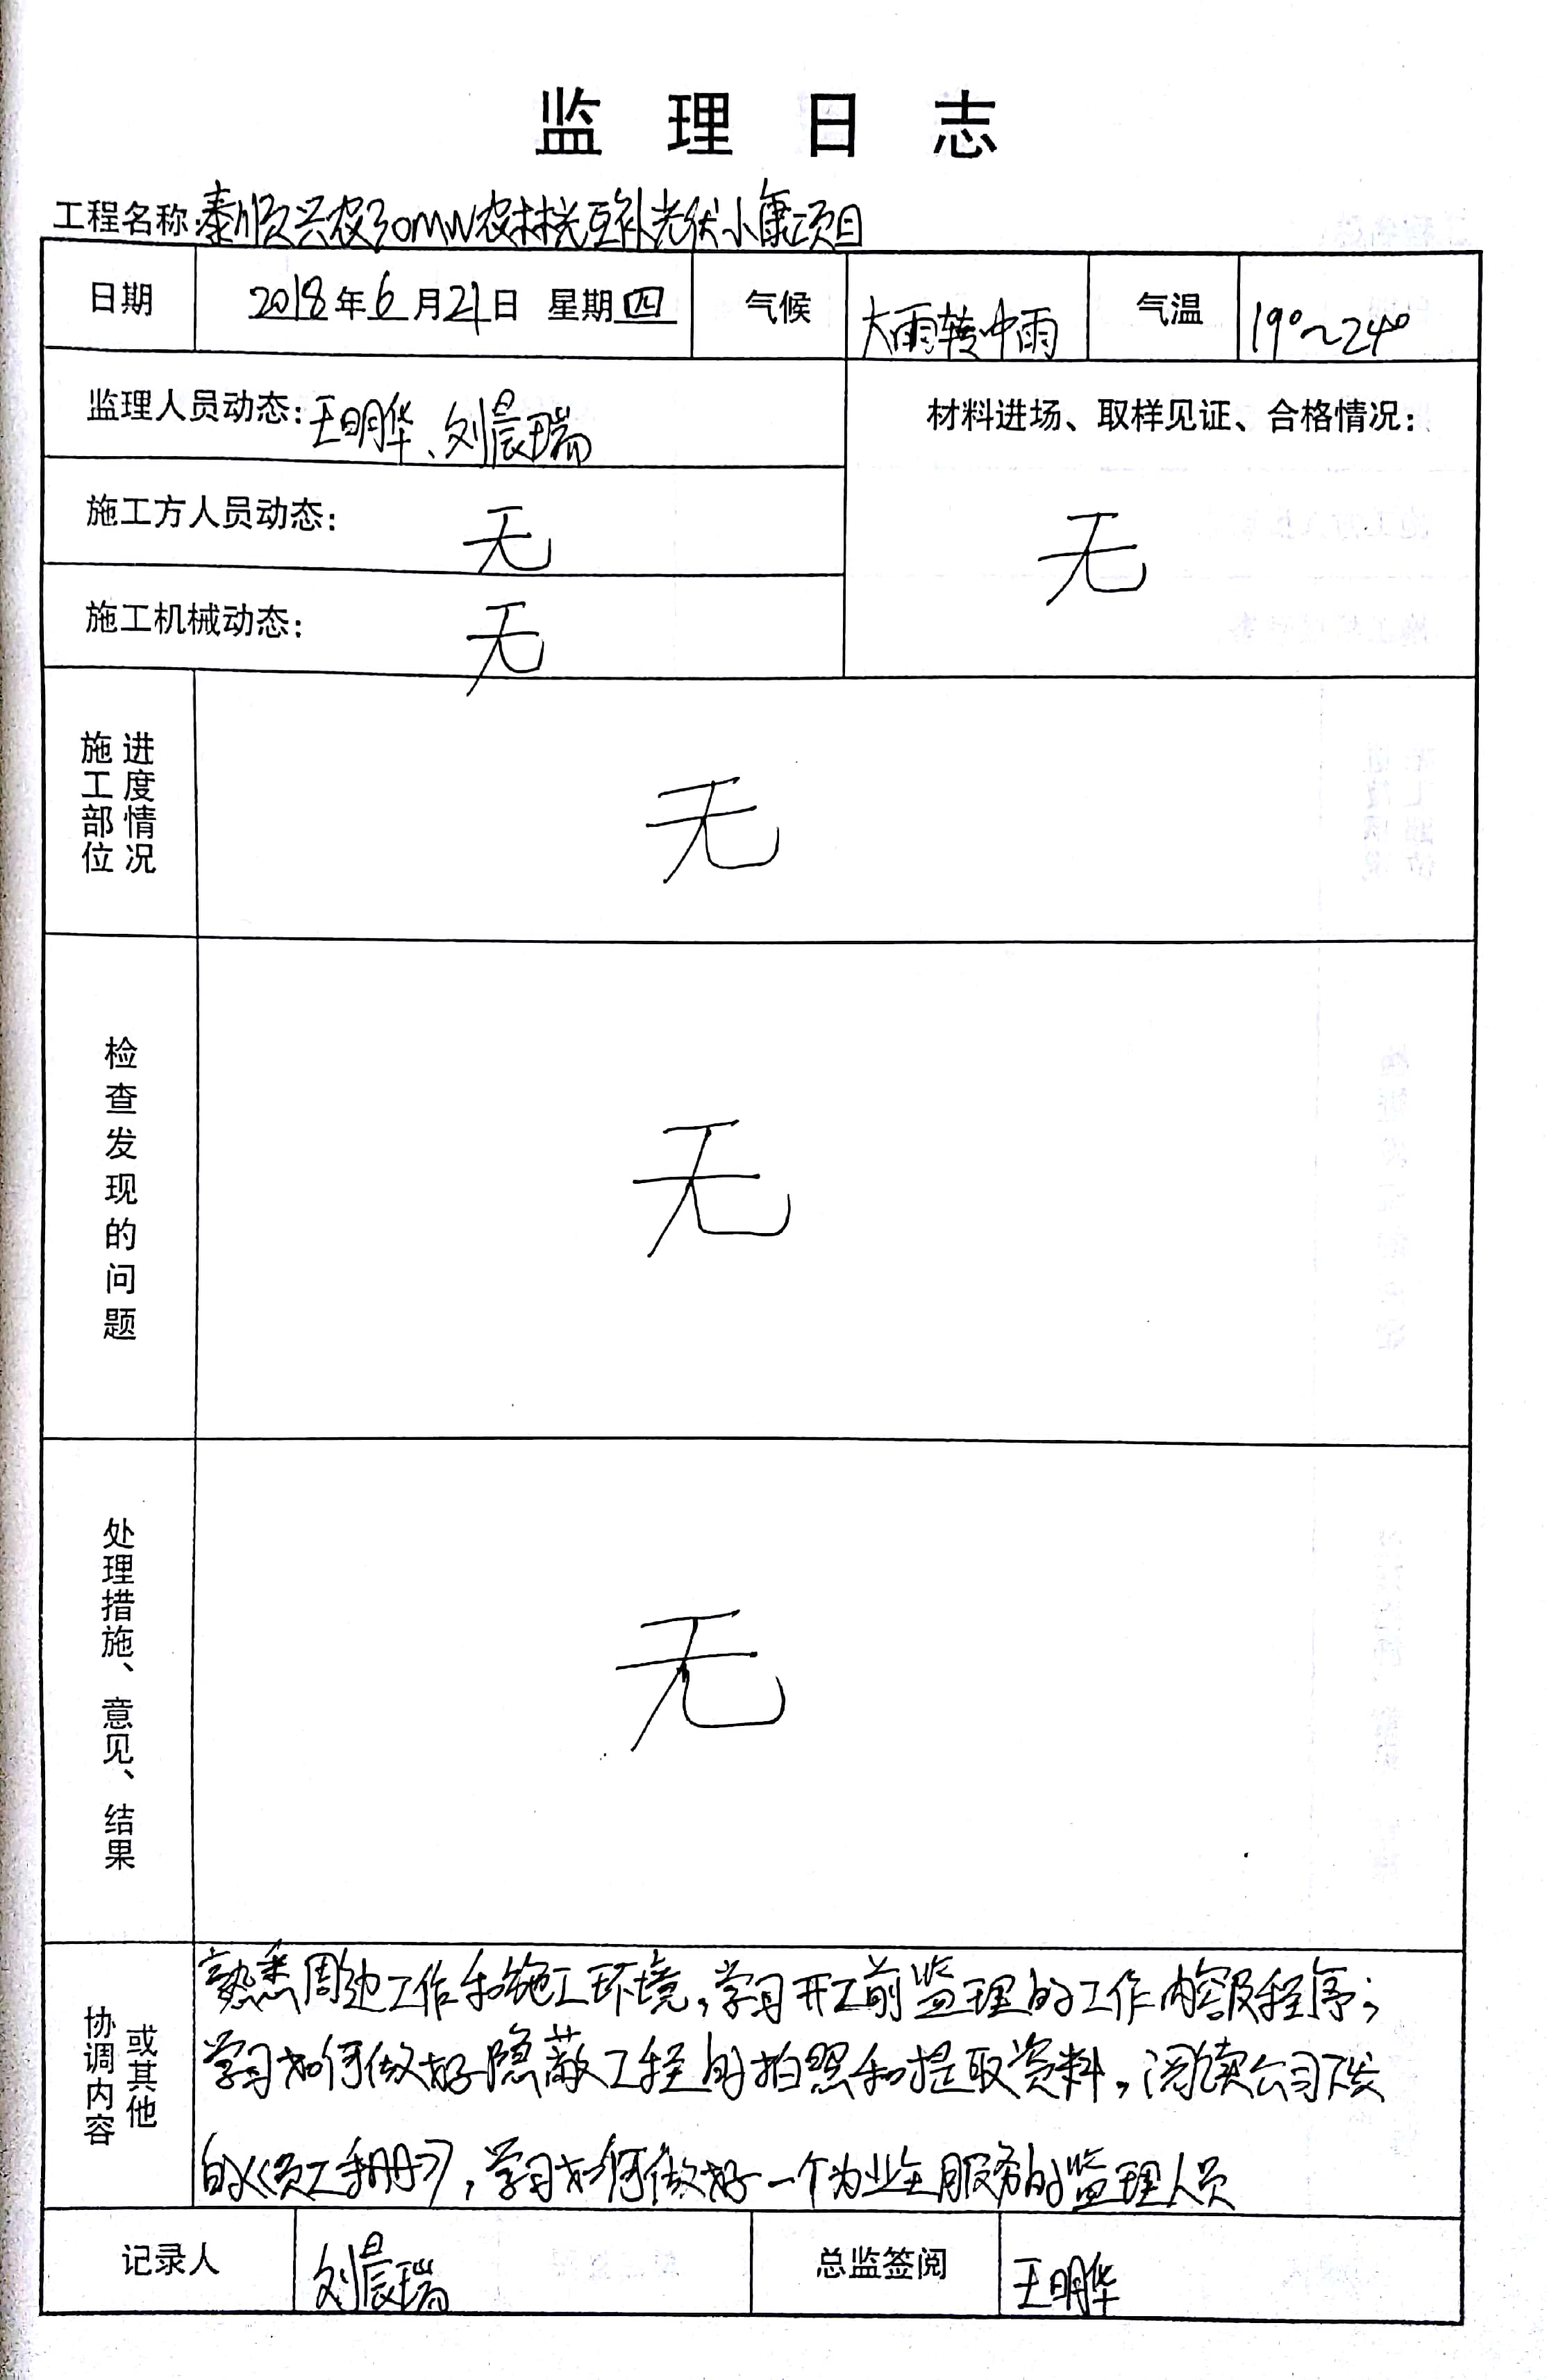 监理日志
工程名称:泰顺兴农30MW农林光互补光伏小康项目
日期 2018年6月21日 星期四 气候 大雨转中雨 气温 19°~24°
监理人员动态:王明华、刘晨瑞
材料进场、取样见证、合格情况:
无
施工方人员动态: 无
施工机械动态: 无
施工部位进度情况
无
检查发现的问题
无
处理措施、意见、结果
无
协调内容或其他
熟悉周边工作和施工环境,学习开工前监理的工作内容及程序;
学习如何做好隐蔽工程的拍照和提取资料,阅读公司下发
的《员工手册》,学习如何做好一个为业主服务的监理人员
记录人 刘晨瑞 总监签阅 王明华